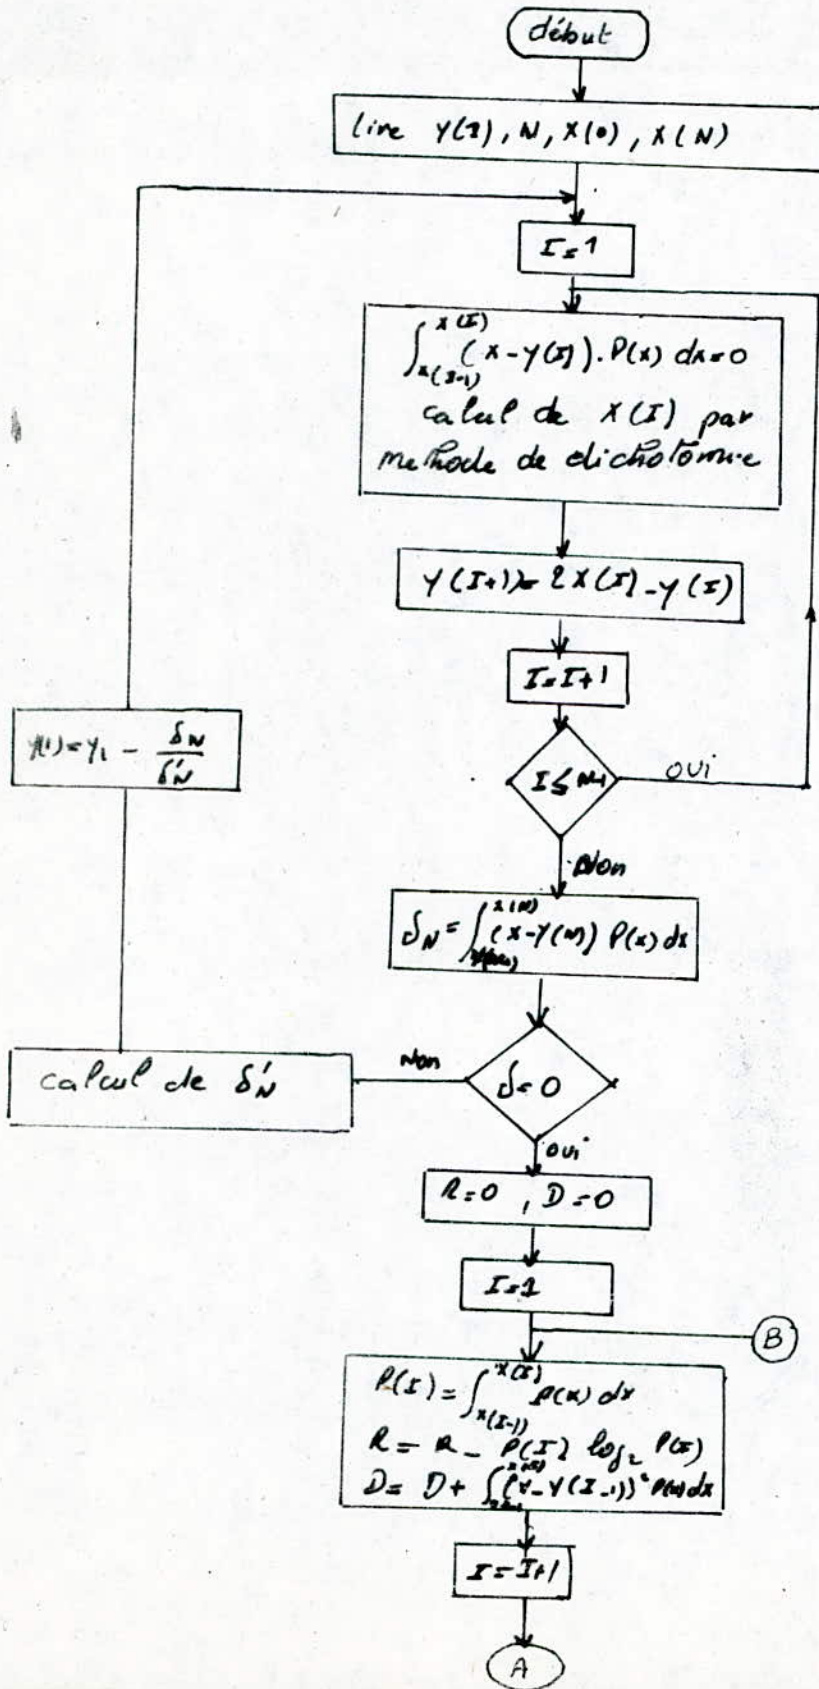 début
lire Y(I), N, X(0), X(N)
I=1
∫_{x(I-1)}^{x(I)} (x-y(I)). P(x) dx=0
calul de X(I) par
methode de dichotomie
Y(I+1)= 2X(I)-y(I)
I=I+1
I≤N-1
OUI
Non
y(1)=y₁ - δN/δ'N
δN= ∫^{x(N)} (x-Y(N)) P(x) dx
δ=0
Non
calcul de δ'N
oui
R=0 , D=0
I=1
B
P(I)= ∫_{x(I-1)}^{x(I)} P(x) dx
R= R - P(I) log₂ P(I)
D= D+ ∫ (x-Y(I-1))² P(x) dx
I=I+1
A